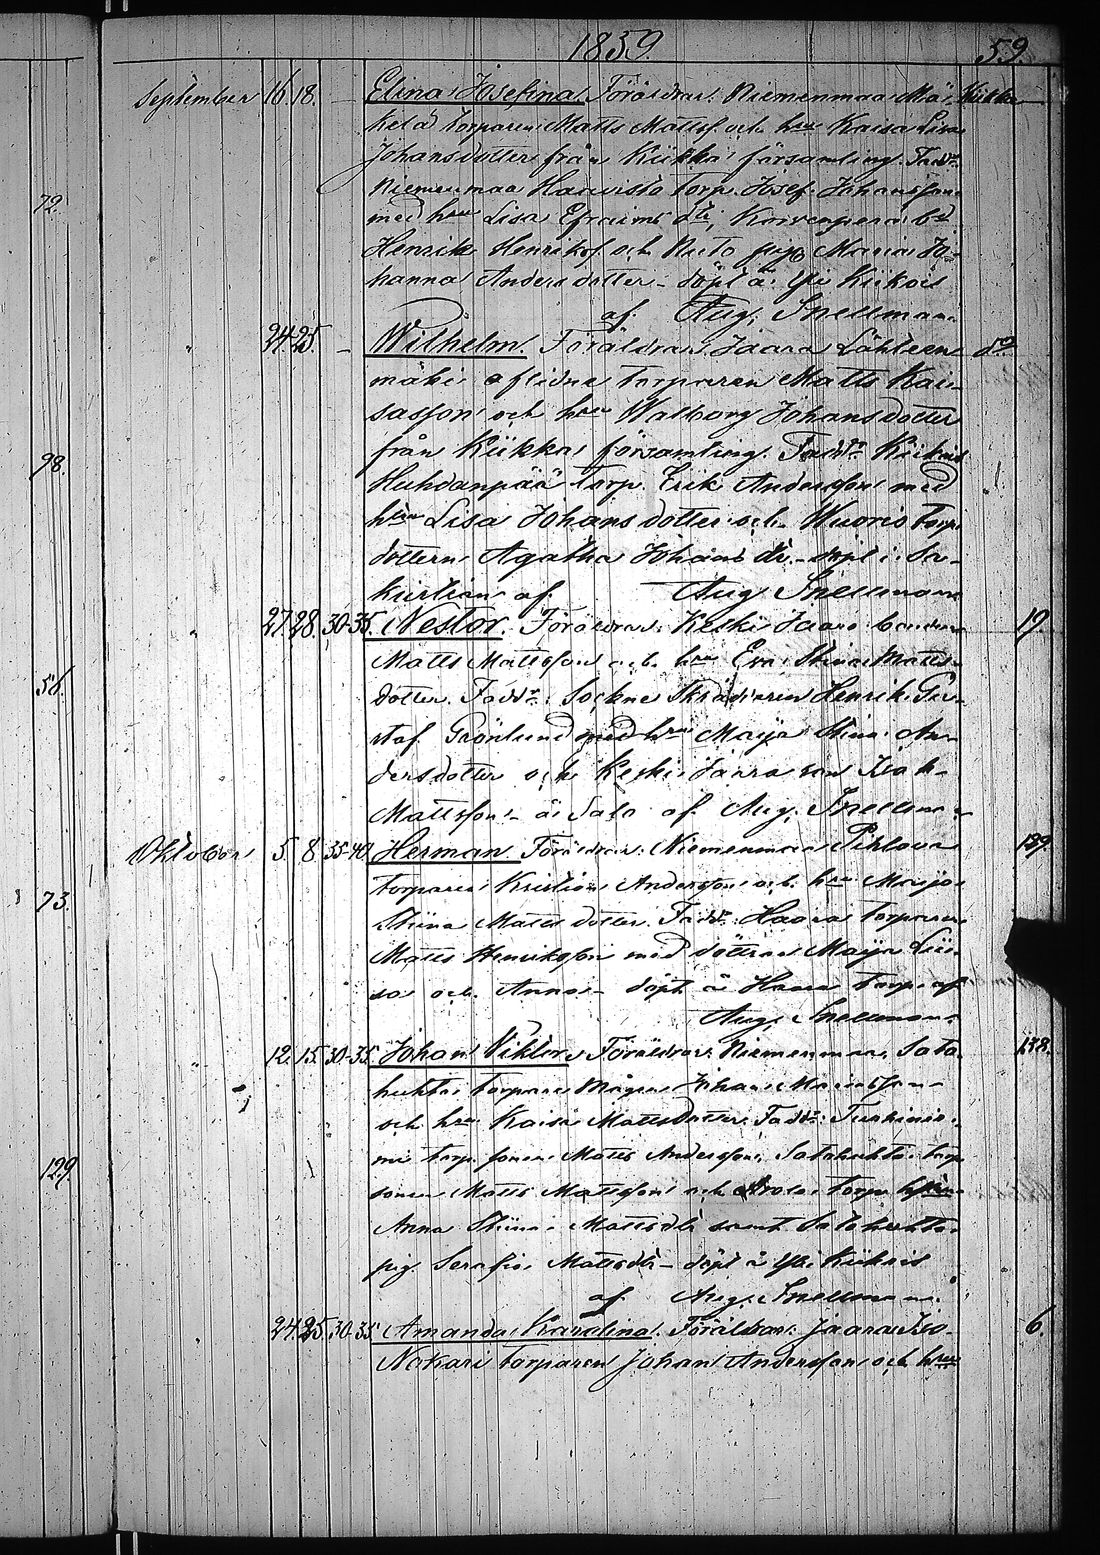 1859. 59.
September 16. 18. Elina Josefina. Föräldrar: Niemenmaa Mä- Kiikka
kelä torparen Matts Mattsf. och hru Kaisa Lisa
Johansdotter från Kiikka församling. Fadd:
Niemenmaa Haavisto torp. Josef Johansson
72.
med hru Lisa Efraims dtr, Korvenpera bd
Henrik Henriksf. och Nuto pig. Maria Jo-
hanna Andersdotter - döpt å Yli Kiikois
af Aug. Snellman.
" 24. 25. Wilhelm. Föräldrar: Jaara Lähteen- do
mäki aflidne torparen Matts Kai-
sasson och hru Walborg Johansdotter
från Kiikka församling. Fadd: Kiikois
98.
Huhdanpää torp. Erik Andersson med
hru Lisa Johansdotter och Wuorio torp.
dottern Agatha Johans dtr. - döpt i Sa-
kristian af Aug. Snellman
" 27. 28. 30-35. Nestor. Föräldrar: Keski Jaara bonden 19.
Matts Mattsson och hru Eva Stina Matts-
56.
dotter. Fadd: Sockne Skräddaren Henrik Gu-
staf Grönlund med hru Maija Stina An-
dersdotter och Keski Jaara son Isak
Mattsson - å Sata af Aug. Snellman
Oktober 5. 8. 35-40. Herman. Föräldrar: Niemenmaa Pihlava 139.
torparen Kristian Andersson och hru Maija
73.
Stina Mattsdotter. Fadd: Haara torparen
Matts Henriksson med döttrar Maija Lii-
sa och Anna - döpt å Haara torp af
Aug. Snellman.
" 12. 15. 30-35. Johan Viktor. Föräldrar: Niemenmaa, Sata- 138.
huhta torpare Mågen Johan
och hru Kaisa Mattsdotter. Fadd:
129.
mi torp. sonen Matts Andersson, Satahuhta torp
sonen Matts Mattsson och torp.
Anna Stina Mattsdtr samt Satahuhta
pig. Serafia Mattsdtr - döpt å Yli Kiikois
af Aug. Snellman.
" 24. 25. 30-35. Amanda Karolina. Föräldrar: Jaara Iso- 6.
Nokari torparen Johan Andersson och hru